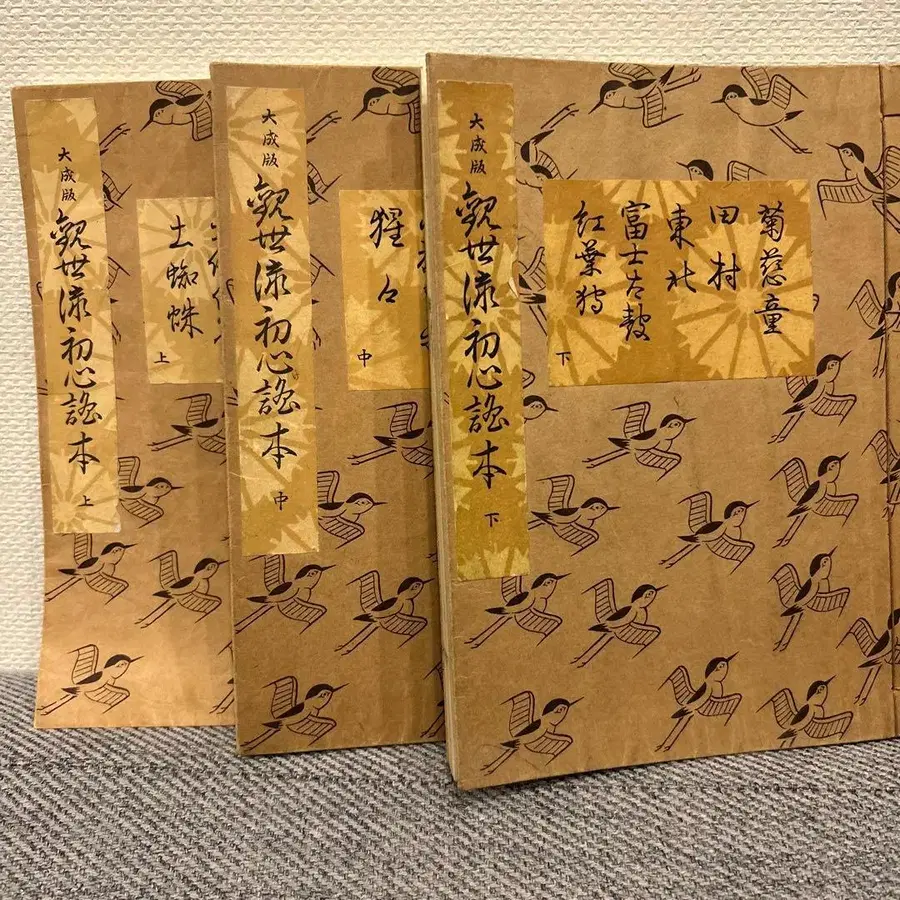 大成版
観世流初心謡本 上
土蜘蛛
上
大成版
観世流初心謡本 中
猩々
中
大成版
観世流初心謡本 下
菊慈童
田村
東北
富士太鼓
紅葉狩
下